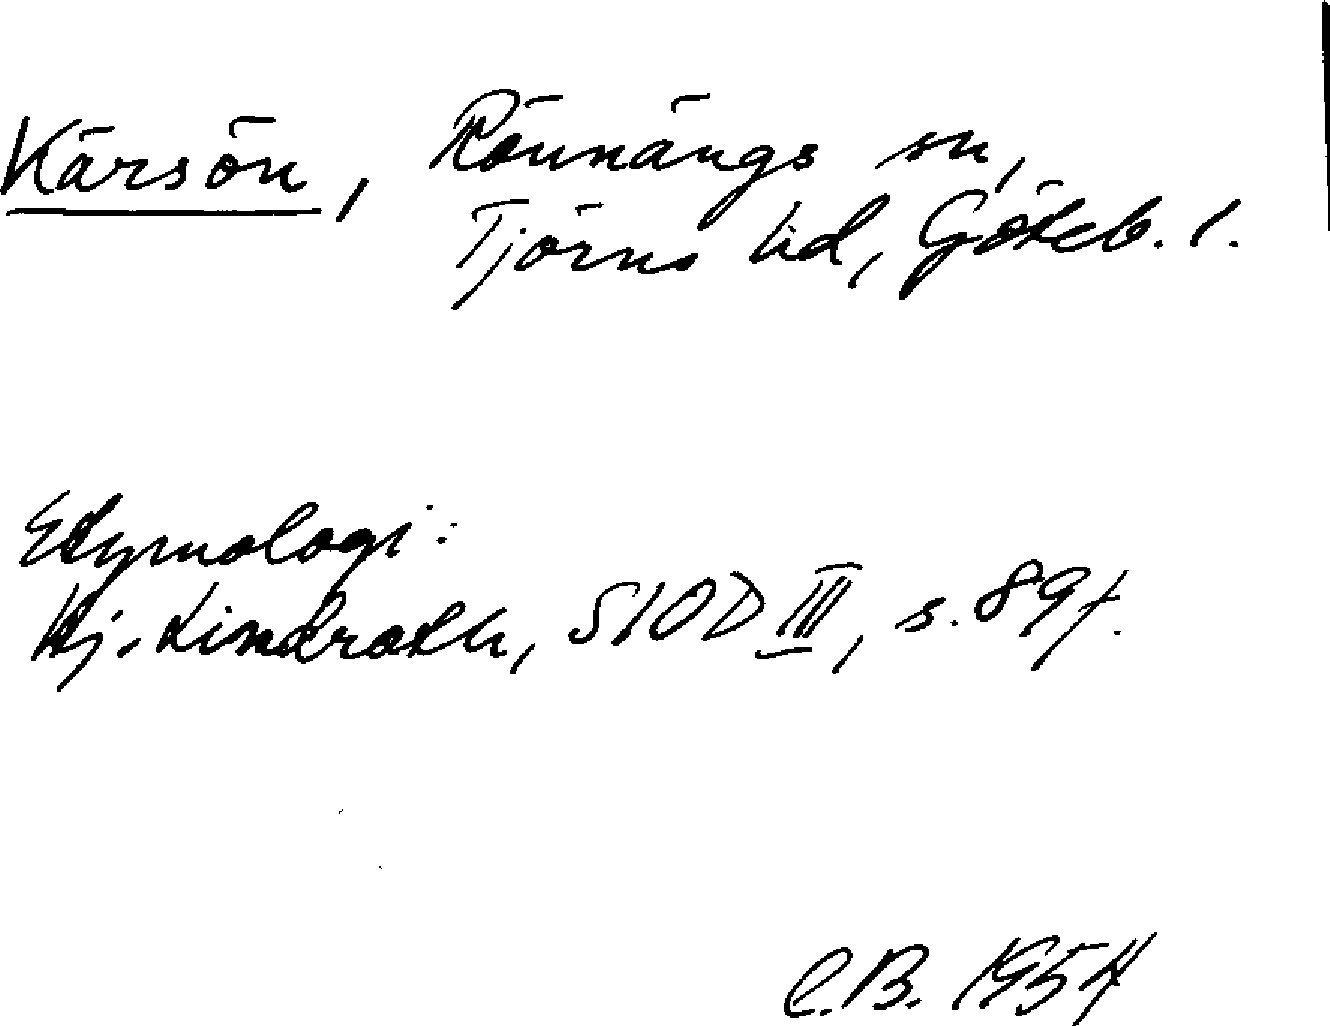 Kärsön, Rönnängs sn,
Tjörns hd, Göteb. l.
Etymologi:
Hj. Lindroth, SIOD III, s. 89f.
C.B. 1954